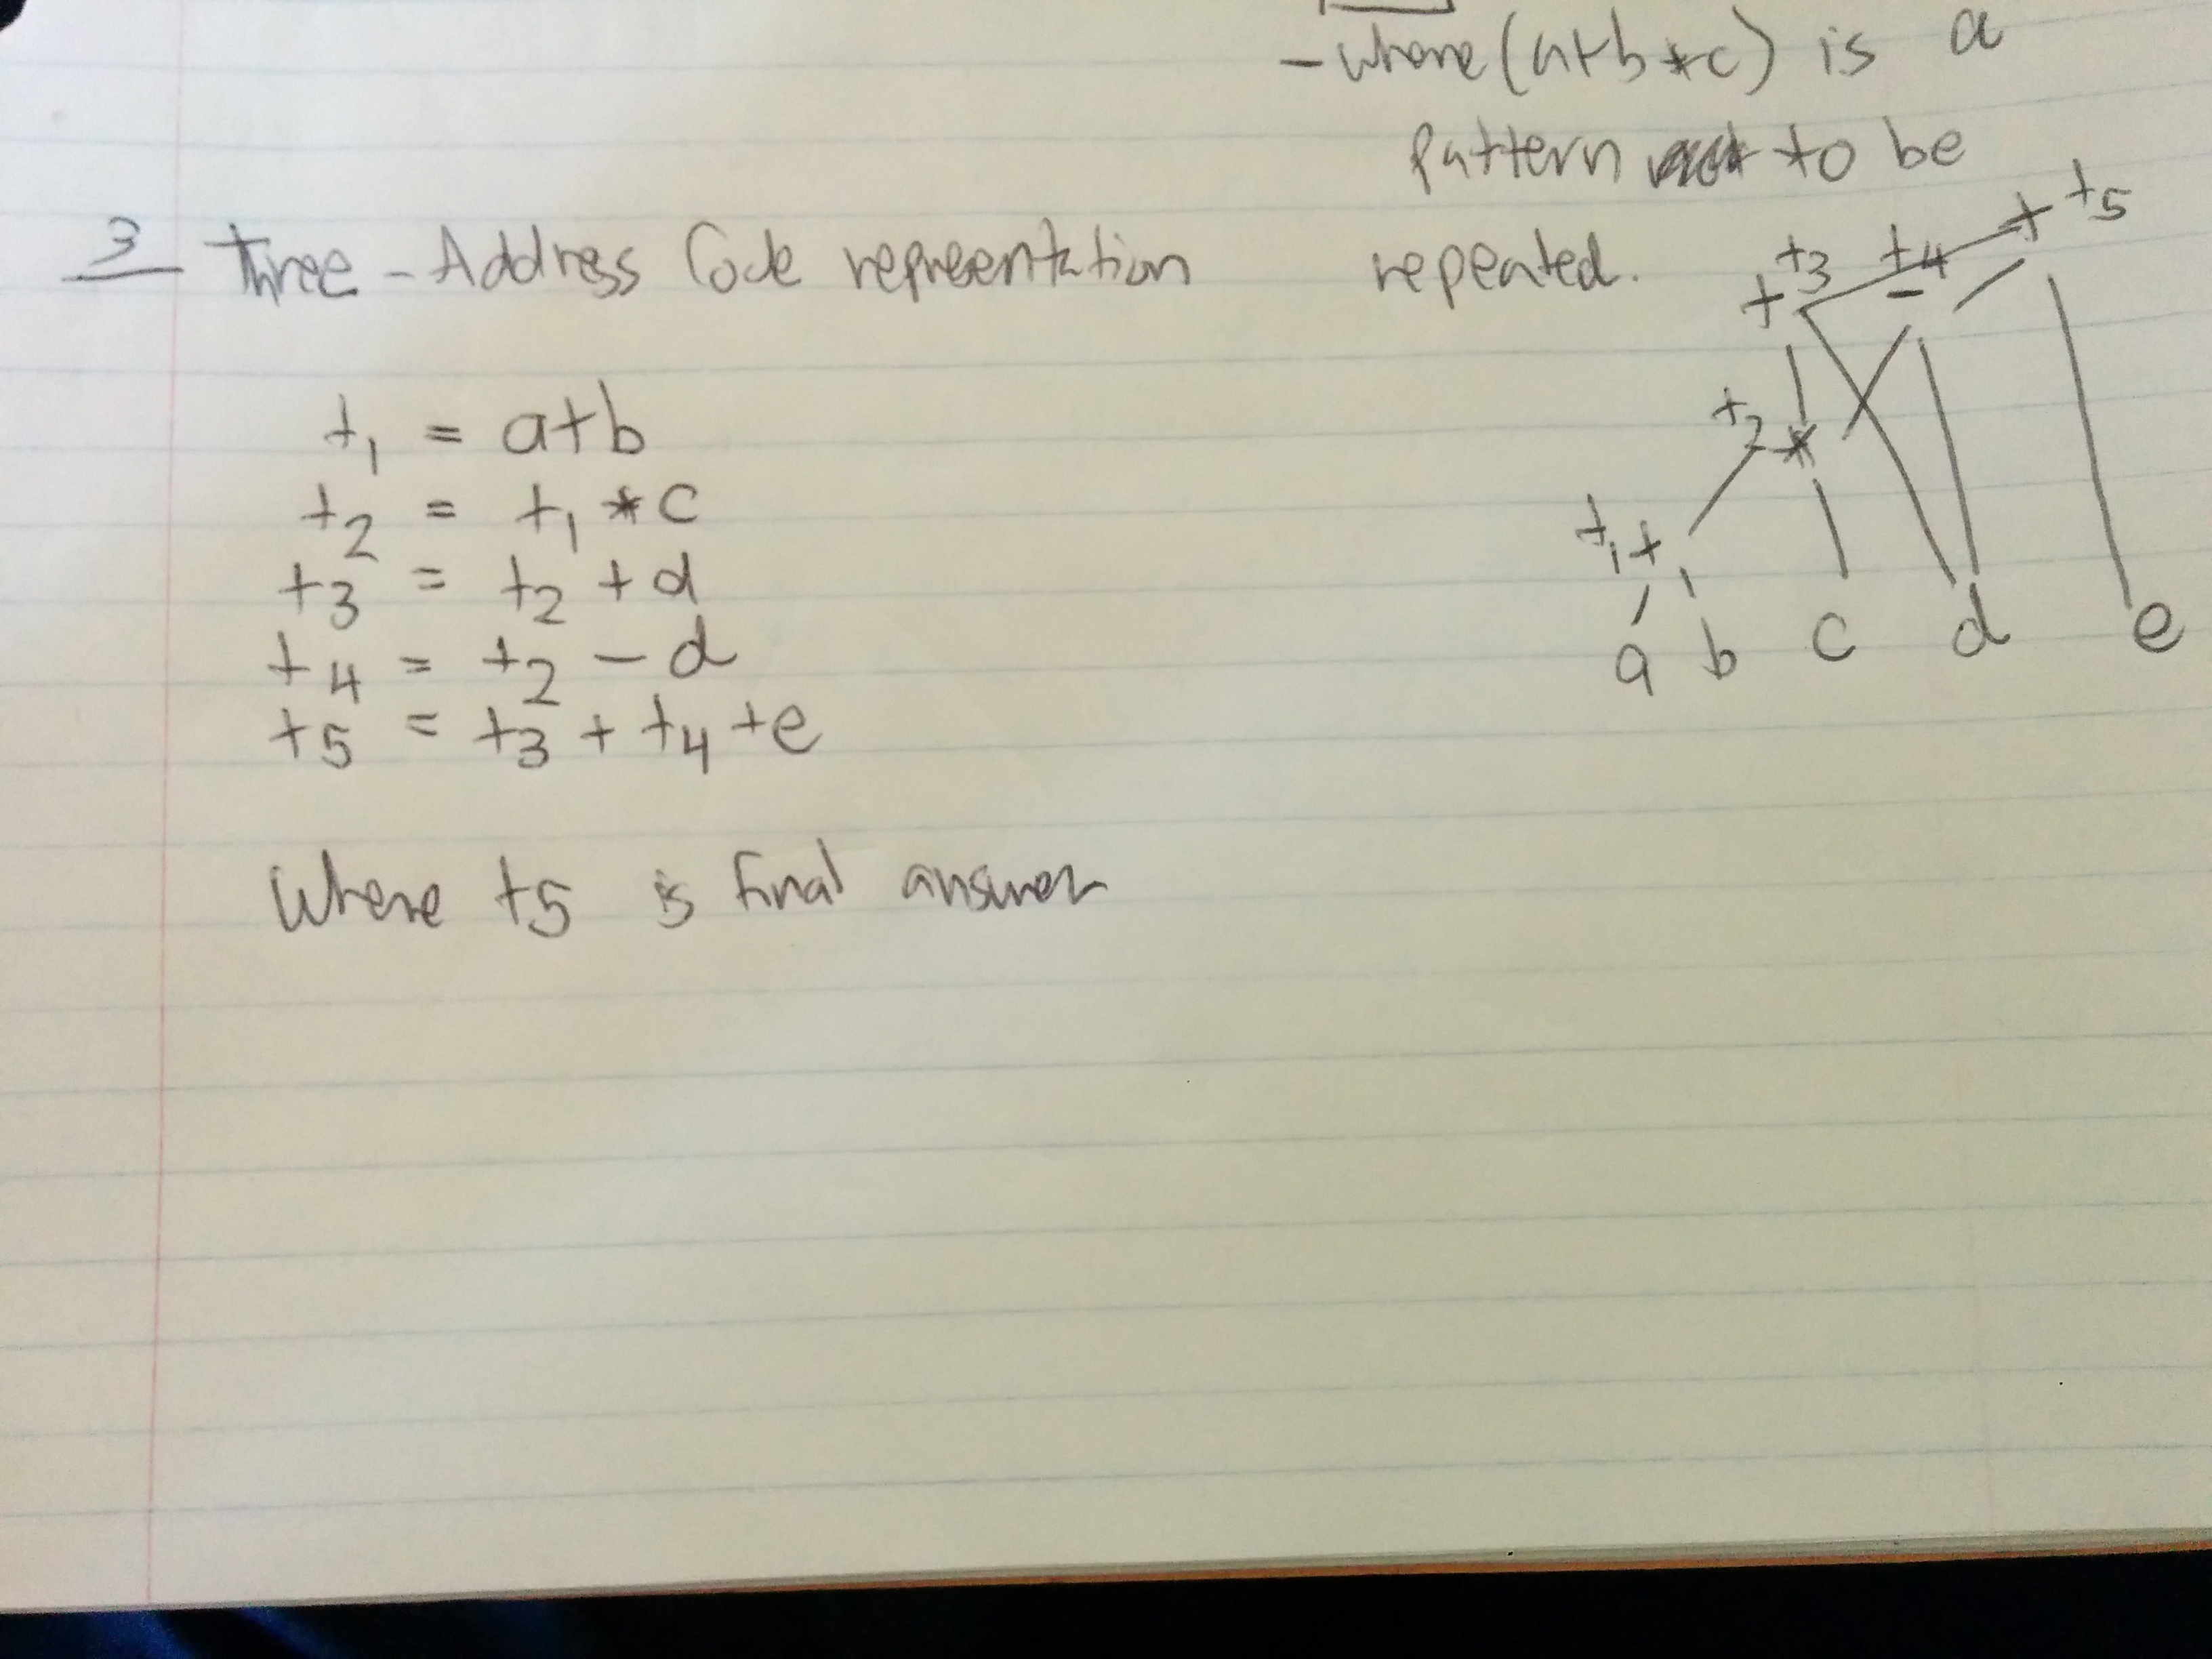 - where (a+b*c) is a
pattern to be
repeated.
3 Three-Address Code representation
t1 = a+b
t2 = t1 * c
t3 = t2 + d
t4 = t2 - d
t5 = t3 + t4 + e
Where t5 is final answer
+ t5
+ t3 - t4
t2 *
t1 +
a b c d e